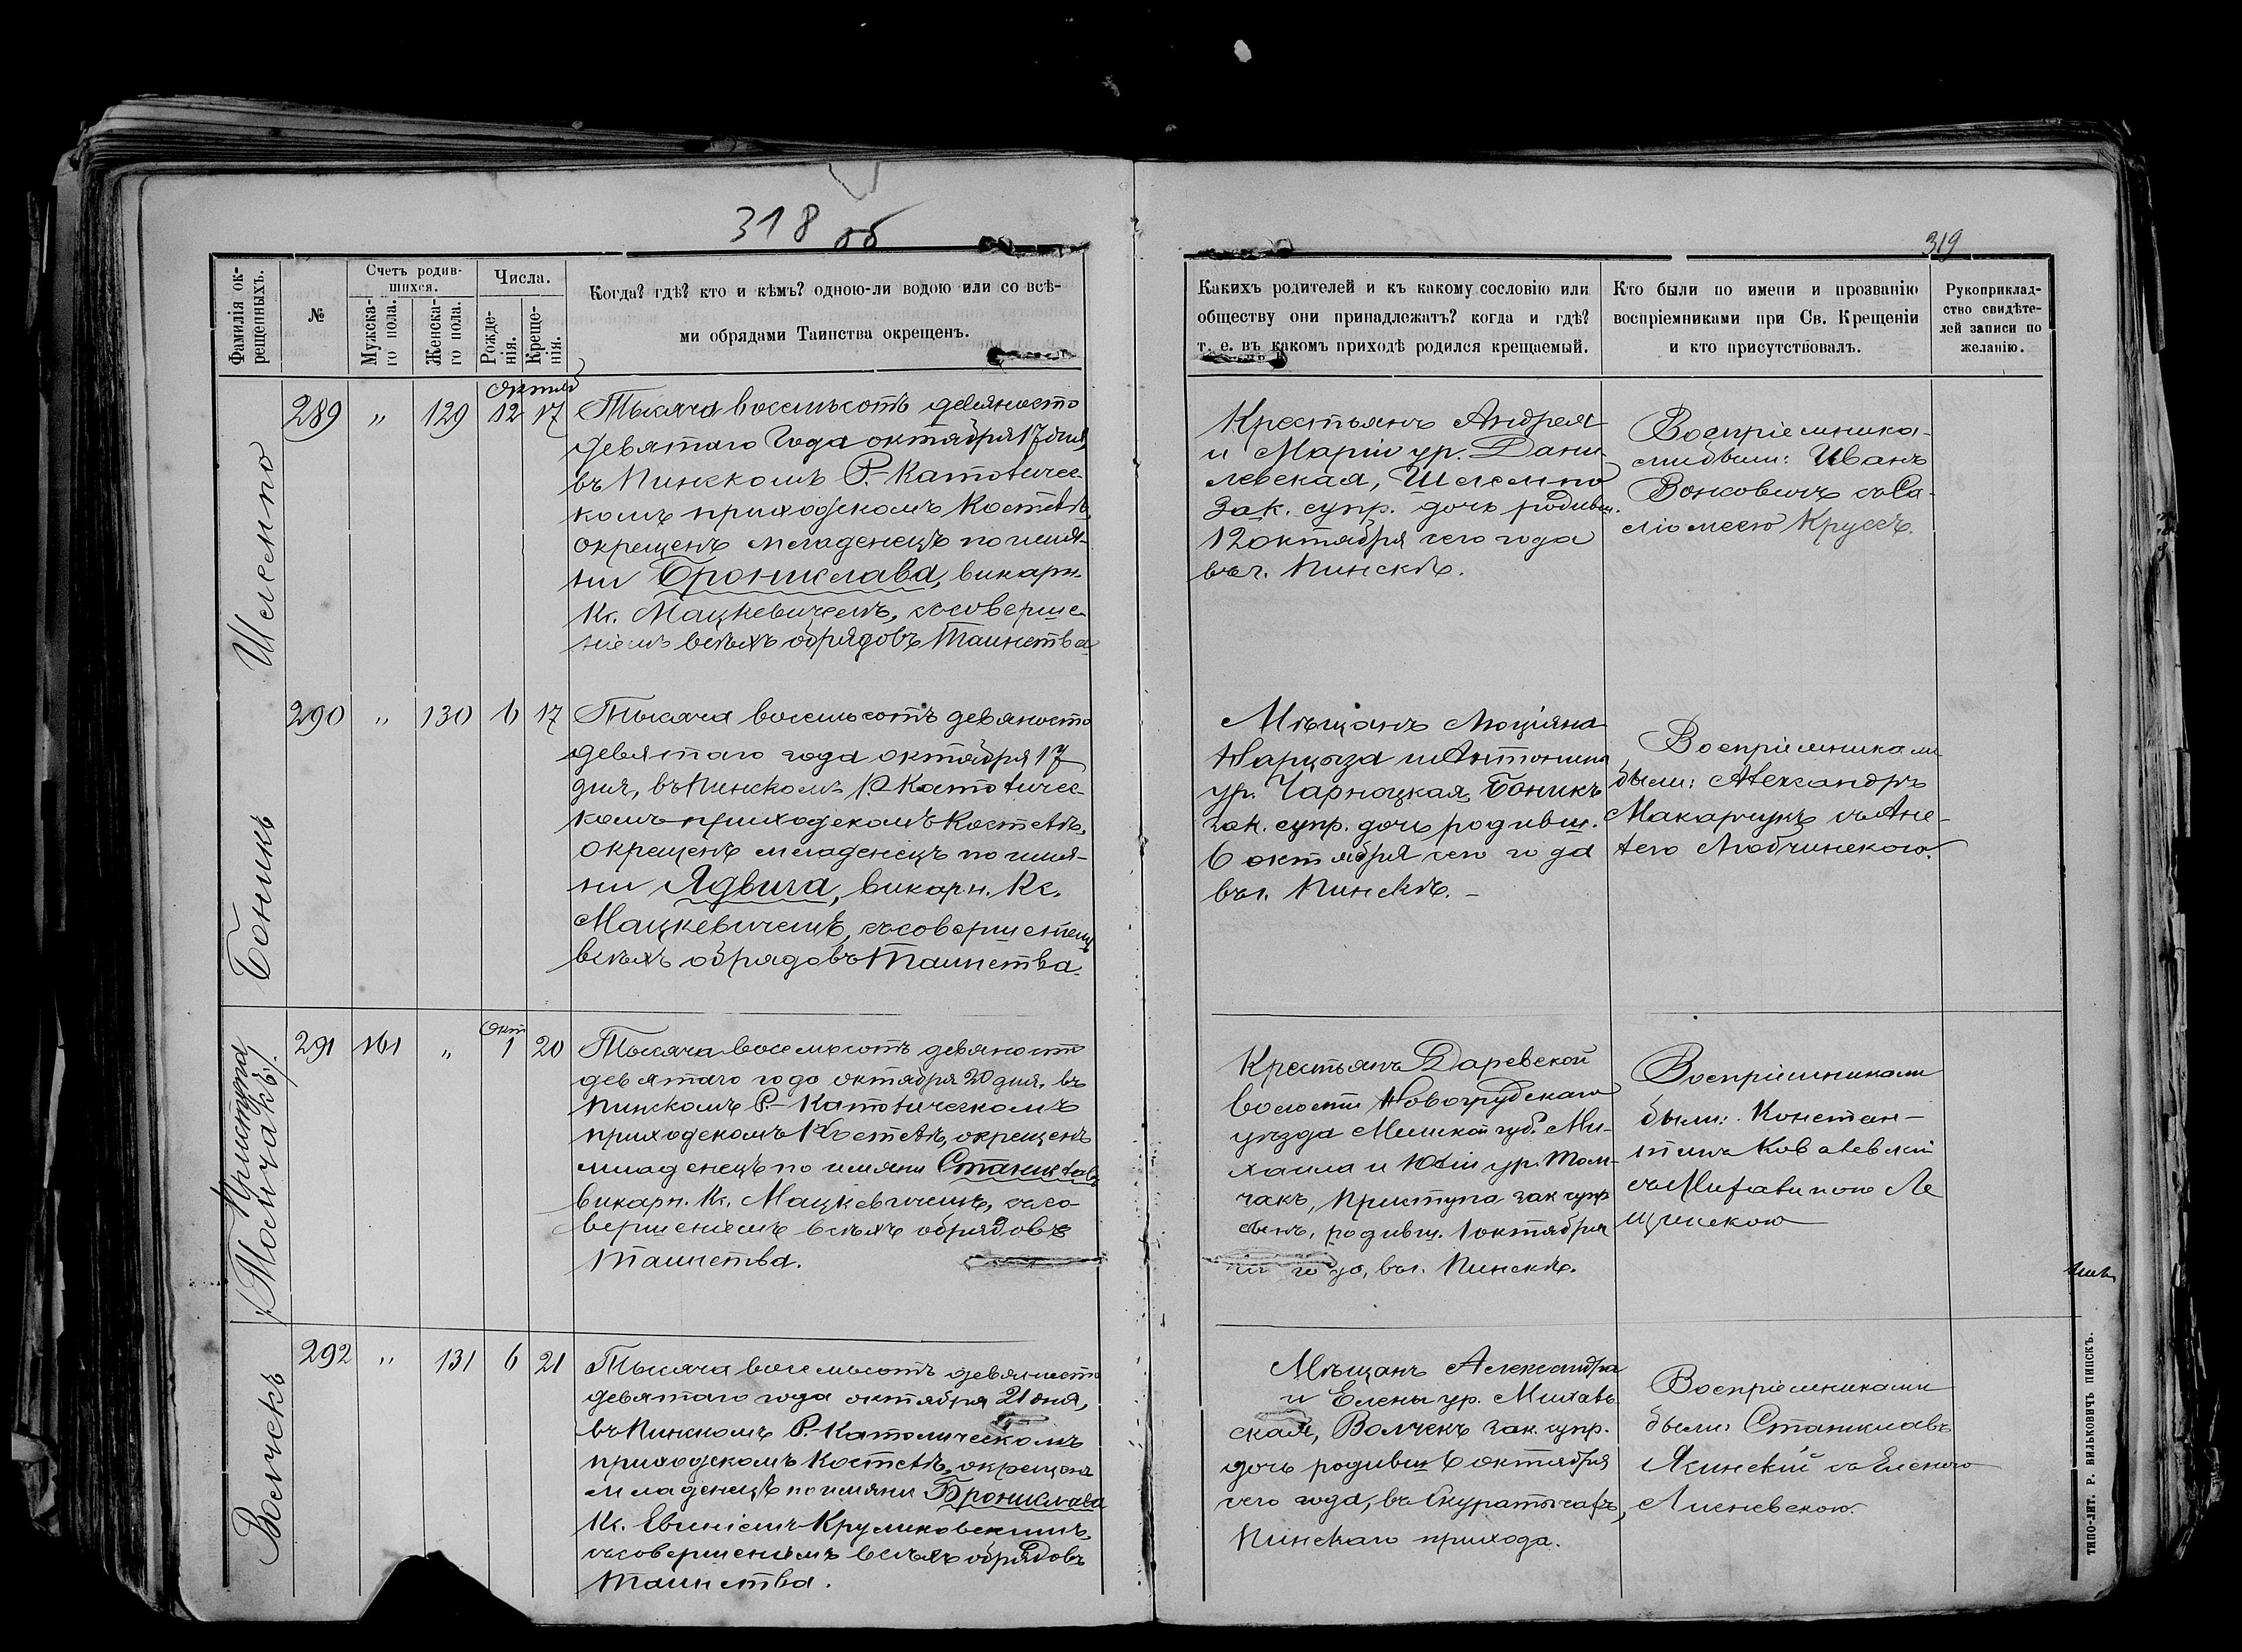 318 об
319
Фамилія ок-
рещенныхъ.
№
Счетъ родив-
шихся.
Мужска-
го пола.
Женска-
го пола.
Числа.
Рожде-
нія.
Креще-
нія.
Когда? гдѣ? кто и кѣмъ? одною-ли водою или со всѣ-
ми обрядами Таинства окрещенъ.
Какихъ родителей и къ какому сословію или
обществу они принадлежатъ? когда и гдѣ?
т. е. въ какомъ приходѣ родился крещаемый.
Кто были по имени и прозванію
воспріемниками при Св. Крещеніи
и кто присутствовалъ.
Рукоприклад-
ство свидѣте-
лей записи по
желанію.
Шелепо
289 " 129 12 17
Тысяча восемьсотъ девяносто
девятаго года октября 17 дня,
въ Пинскомъ Р.-Католичес-
комъ приходскомъ Костелѣ,
окрещенъ младенецъ по имя-
ни Бронислава, викарн.
Кс. Мацкевичемъ, съ соверше-
ніемъ всѣхъ обрядовъ Таинства
Крестьянъ Андрея
и Маріи ур. Дани-
левская, Шелепо
зак. супр. дочь родивш.
12 октября сего года
въ г. Пинскѣ.
Воспріемника-
ми были: Иванъ
Крусъ.
Боникъ
290 " 130 6 17
Тысяча восемьсотъ девяносто
девятаго года октября 17
дня, въ Пинскомъ Р. Католичес-
комъ приходскомъ Костелѣ,
окрещенъ младенецъ по имя-
ни Ядвига, викарн. Кс.
Мацкевичемъ, съ совершеніемъ
всѣхъ обрядовъ Таинства.
Мѣщанъ Люціяна
Нарцыза и Антонины
ур. Чарноцкая, Боникъ
зак. супр. дочь родивш.
6 октября сего года
въ г. Пинскѣ. –
Воспріемниками
были: Александръ
Макарчукъ съ Ане-
лею Любчинскою.
Приступа
(Томчакъ).
291 161 " Окт 1 20
Тысяча восемьсотъ девяносто
девятаго года октября 20 дня, въ
Пинскомъ Р.-Католическомъ
приходскомъ Костелѣ, окрещенъ
младенецъ по имяни Станиславъ
викарн. Кс. Мацкевичемъ, съ со-
вершеніемъ всѣхъ обрядовъ
Таинства.
Крестьянъ Даревской
волости Новогрудскаго
уѣзда Минской губ. Ми-
хаила и Юліи ур. Том-
чакъ, Приступа зак супр
сынъ, родивш. 1 октября
года, въ г. Пинскѣ.
Воспріемниками
были: Констан-
тинъ Ковалевскій
Ле
щинскою
Волчекъ
292 " 131 6 21
Тысяча восемьсотъ девяносто
девятаго года октября 21 дня,
въ Пинскомъ Р.-Католическомъ
приходскомъ Костелѣ, окрещенъ
младенецъ по имяни Бронислава
Кс. Евгеніемъ Круликовскимъ,
съ совершеніемъ всѣхъ обрядовъ
Таинства.
Мѣщанъ Александра
и Елены ур. Михаль-
ская, Волчекъ зак. супр.
дочь родивш 6 октября
сего года, въ
Пинскаго прихода.
Воспріемниками
были: Станиславъ
Ясинскій съ Еленою
Лисневскою.
ТИПО-ЛИТ. Р. ВИЛЬКОВИЧЪ ПИНСКЪ.